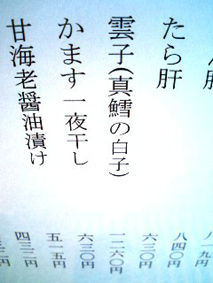 肝
たら肝
雲子(真鱈の白子)
かます一夜干し
甘海老醤油漬け
八四〇円
六三〇円
一二六〇円
六三〇円